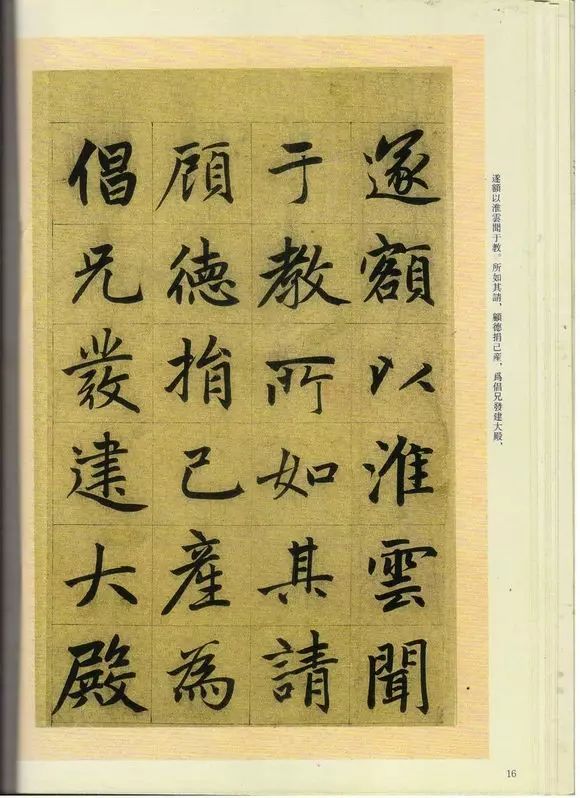 遂額以淮雲聞
于教所如其請
顧德捐己產為
倡兄發建大殿
遂額以淮雲聞于教。所如其請，顧德捐己産，爲倡兄發建大殿、
16